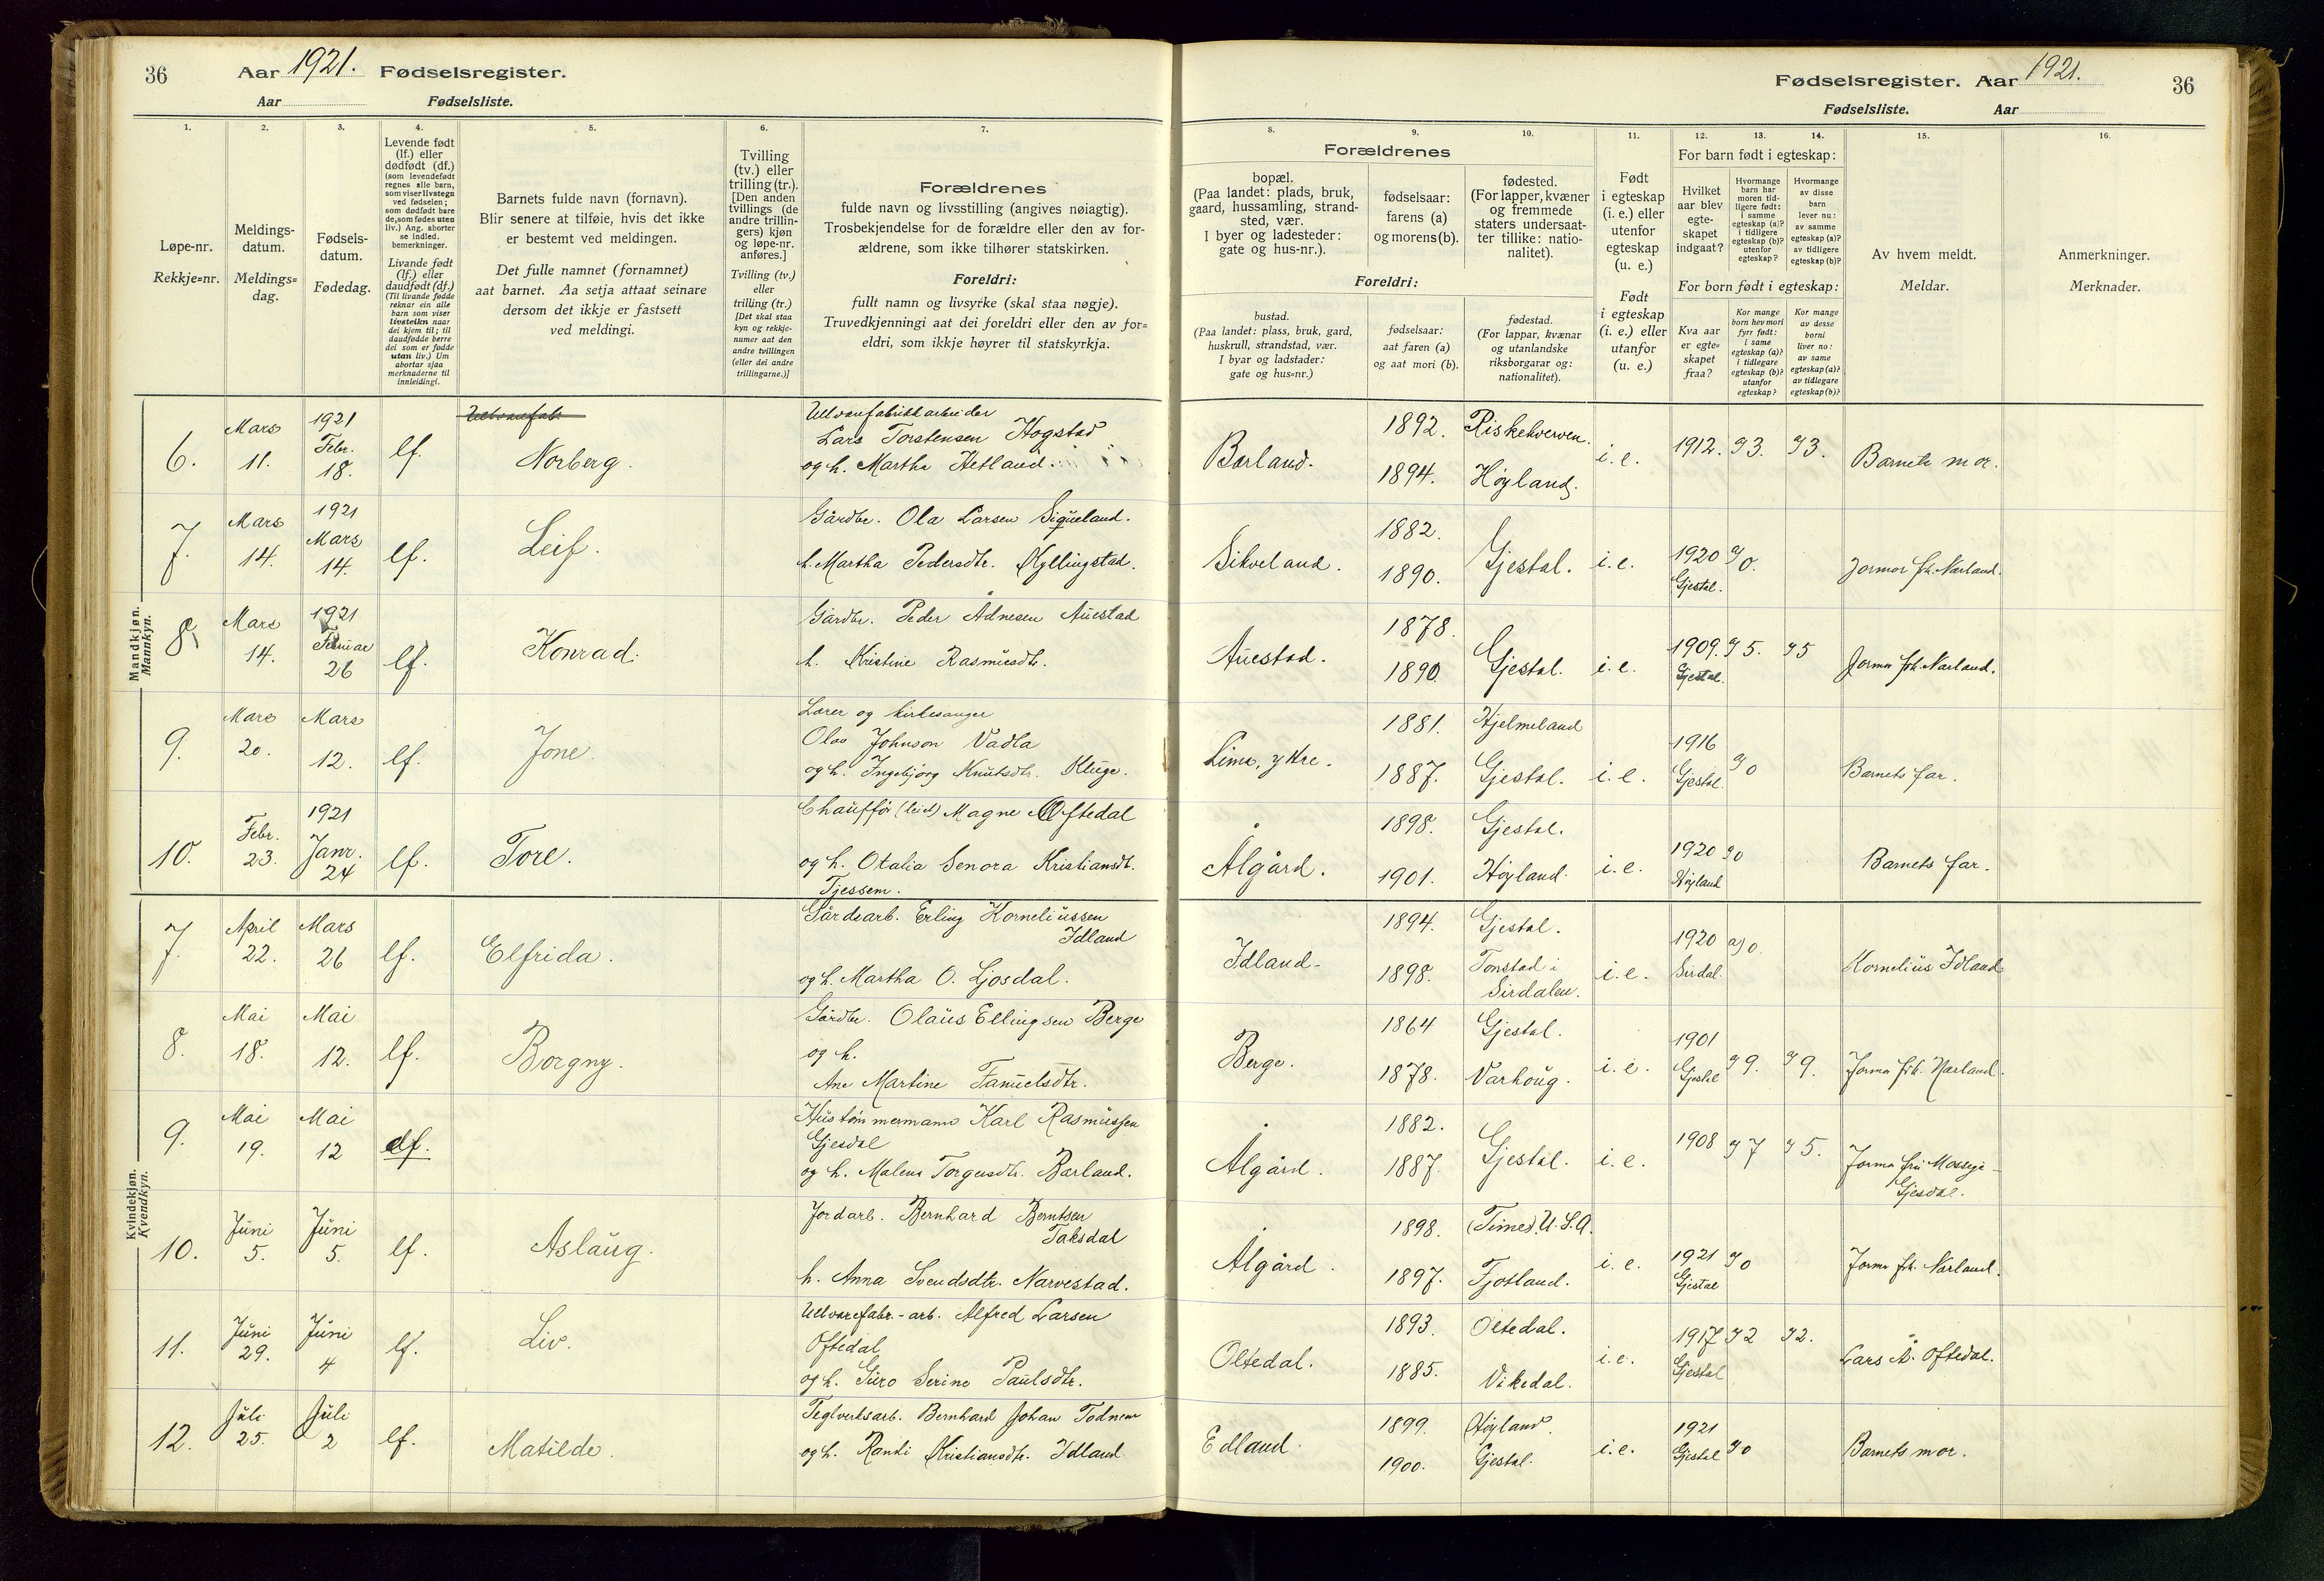 36
Aar 1921. Fødselsregister.
Aar
Fødselsliste.
1.
Løpe-nr.
Rekkje=nr.
2.
Meldings-
datum.
Meldings=
dag.
3.
Fødsels-
datum.
Fødedag.
4.
Levende født
(lf.) eller
dødfødt (df.)
(som levendefødt
regnes alle barn,
som viser livstegn
ved fødselen;
som dødfødt bare
de, som fødes uten
liv.) Ang. aborter
se indled.
bemerkninger.
Livande født
(lf.) eller
daudfødt (df.)
(Til livande fødde
reknar ein alle
barn som viser
livsteikn naar
dei kjem til; til
daudfødde berre
dei som er fødde
utan liv.) Um
abortar sjaa
merknaderne til
innleidingi.
5.
Barnets fulde navn (fornavn).
Blir senere at tilføie, hvis det ikke
er bestemt ved meldingen.
Det fulle namnet (fornamnet)
aat barnet. Aa setja attaat seinare
dersom det ikkje er fastsett
ved meldingi.
6.
Tvilling
(tv.) eller
trilling (tr.).
[Den anden
tvillings (de
andre trillin-
gers) kjøn
og løpe-nr.
anføres.]
Tvilling (tv.)
eller
trilling (tr.)
[Det skal staa
kyn og rekkje-
numer aat den
andre tvillingen
(eller dei andre
trillingarne.)]
7.
Forældrenes
fulde navn og livsstilling (angives nøiagtig).
Trosbekjendelse for de forældre eller den av for-
ældrene, som ikke tilhører statskirken.
Foreldri:
fullt namn og livsyrke (skal staa nøgje).
Truvedkjenningi aat dei foreldri eller den av for=
eldri, som ikkje høyrer til statskyrkja.
Mandkjøn.
Mannkyn.
6.
Mars
11.
1921
Febr.
18.
lf.
Norberg.
Uldvarefabrikkarbeider
Lars Torstensen Hogstad
og h. Martha Hetland.
7.
Mars
14.
1921
Mars
14.
lf.
Leif.
Gårdbr. Ola Larsen Siqueland.
h. Martha Pedersdtr. Kyllingstad.
8.
Mars
14.
1921
Februar
26
lf.
Konrad.
Gårdbr. Peder Ådnesen Auestad
h. Kristine Rasmusdtr.
9.
Mars
20.
Mars
12.
lf.
Jone.
Lærer og kirkesanger
Olav Johnson Vadla
og h. Ingebjørg Knutsdtr. Kluge.
10.
Febr.
23.
1921
Janr.
24
lf.
Tore.
Chauffør (leiet) Magne Oftedal
og h. Otalia Senora Kristiansdt.
Tjessem.
Kvindekjøn.
Kvendkyn.
7.
April
22.
Mars
26
lf.
Elfrida.
Gårdsarb. Erling Korneliussen
Idland
og h. Martha O. Ljosdal.
8.
Mai
18.
Mai
12.
lf.
Borgny.
Gårdbr. Olaus Ellingsen Berge
og h.
Ane Martine Samuelsdtr.
9.
Mai
19.
Mai
12
df.
Hustømmermann Karl Rasmussen
Gjesdal
og h. Malena Torgersdtr. Bærland.
10.
Juni
5.
Juni
5.
lf.
Aslaug.
Jordarb. Bernhard Berntsen
Taksdal
h. Anna Svendsdtr. Narvestad.
11.
Juni
29.
Juni
4
lf.
Liv.
Uldvarefabr.-arb. Alfred Larsen
Oftedal
og h. Guro Serine Paulsdtr.
12.
Juli
25.
Juli
2
lf.
Matilde.
Teglverksarb. Bernhard Johan Todnem
og h. Randi Kristiansdtr. Idland
Fødselsregister. Aar 1921.
36
Fødselsliste.
Aar
Forældrenes
8.
bopæl.
(Paa landet: plads, bruk,
gaard, hussamling, strand-
sted, vær.
I byer og ladesteder:
gate og hus-nr.).
9.
fødselsaar:
farens (a)
og morens (b).
10.
fødested.
(For lapper, kvæner
og fremmede
staters undersaat-
ter tillike: natio-
nalitet).
Foreldri:
bustad.
(Paa landet: plass, bruk, gard,
huskrull, strandstad, vær.
I byar og ladstader:
gate og hus=nr.)
fødselsaar:
aat faren (a)
og aat mori (b).
fødestad.
(For lappar, kvænar
og utanlandske
riksborgarar og:
nationalitet).
11.
Født
i egteskap
(i. e.) eller
utenfor
egteskap
(u. e.)
Født
i egteskap
(i. e.) eller
utanfor
(u. e.)
12.
13.
14.
For barn født i egteskap:
Hvilket
aar blev
egte-
skapet
indgaat?
Hvormange
barn har
moren tid-
ligere født:
i samme
egteskap (a)?
i tidligere
egteskap (b)?
utenfor
egteskap?
Hvormange
av disse
barn
lever nu:
av samme
egteskap (a)?
av tidligere
egteskap (b)?
For born født i egteskap:
Kva aar
er egte=
skapet
fraa?
Kor mange
born hev mori
fyrr født:
i same
egteskap (a)?
i tidlegare
egteskap (b)?
utanfor
egteskap?
Kor mange
av desse
borni
liver no:
av same
egteskap (a)?
av tidlegare
egteskap (b)?
15.
Av hvem meldt.
Meldar.
16.
Anmerkninger.
Merknader.
Bærland.
1892.
1894.
Riskekverven.
Høyland.
i. e.
1912.
a) 3.
a) 3.
Barnets mor.
Sikveland.
1882.
1890.
Gjestal.
i. e.
1920
Gjestal.
a) 0.
Jormor frk. Nærland.
Auestad.
1878.
1890
Gjestal.
i. e.
1909.
Gjestal.
a) 5.
a) 5
Jormor frk. Nærland.
Lima, ytre.
1881.
1887.
Hjelmeland
Gjestal.
i. e.
1916
Gjestal.
a) 0
Barnets far.
Ålgård.
1898.
1901.
Gjestal.
Høyland.
i. e.
1920
Høyland
a) 0
Barnets far.
Idland.
1894.
1898.
Gjestal.
Tonstad i
Sirdalen.
i. e.
1920
Sirdal.
a) 0.
Kornelius Idland
Berge.
1864
1878.
Gjestal.
Varhaug.
i. e.
1901
Gjestal
a) 9.
a) 9.
Jormor frk. Nærland.
Ålgård.
1882.
1887.
Gjestal.
i. e.
1908
a) 7
a) 5.
Jormor fru Mossige-
Gjesdal.
Ålgård.
1898.
1897.
(Time). U.S.A.
Fjotland.
i. e.
1921
Gjestal
a) 0
Jormor frk. Nærland.
Oltedal.
1893.
1885.
Oltedal.
Vikedal.
i. e.
1917
Gjestal
a) 2
a) 2.
Lars Å. Oftedal.
Edland.
1899.
1900.
Høyland.
Gjestal.
i. e.
1921
Gjestal
a) 0
Barnets mor.